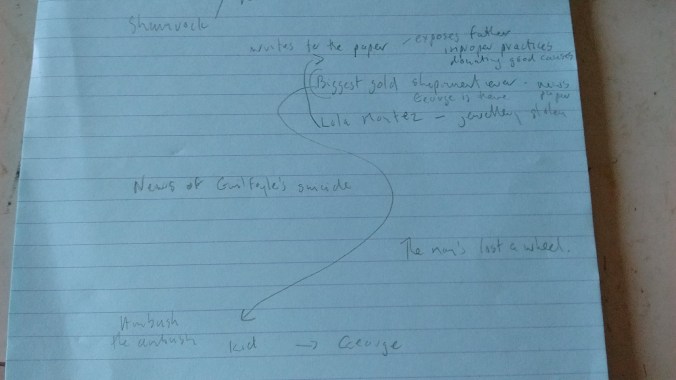 Shamrock /
writes to the paper / exposes father
improper practices
donating good causes
Biggest gold shipment ever - news
George is home paper
Lola Montez - jewellery stolen
News of Guilfoyle's suicide
The man's lost a wheel.
Ambush
the ambush kid → George